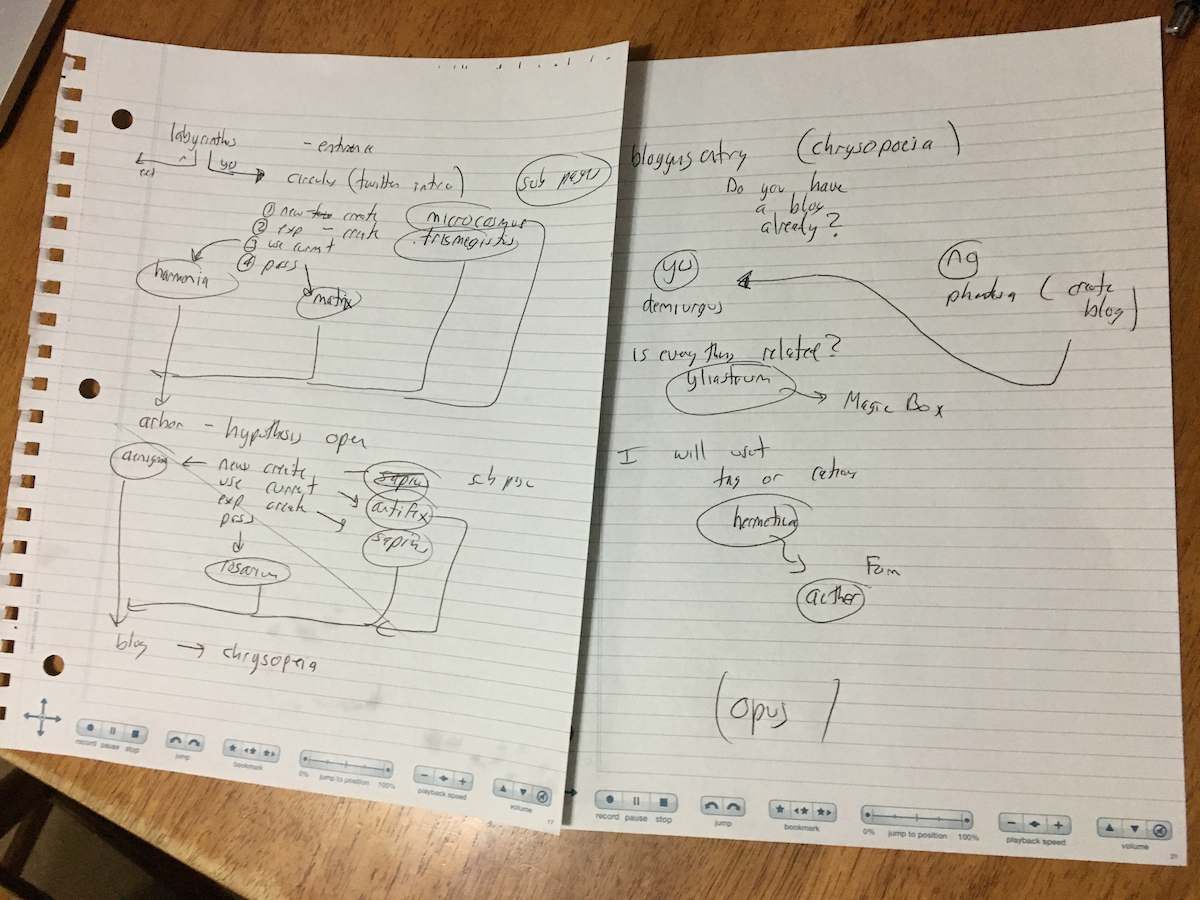 labyrinthus - entrance
yo
circulus (twitter intro)
sub pages
① new create microcosmus
② exp - create trismegistus
③ use current
④ pass
harmonia
matrix
arbor - hypothesis open
new create sub page
use current artifex
exp create
pass
rosarium
blog → chrysopeia
record pause stop
jump
bookmark
0% jump to position 100%
playback speed
volume
17
entry (chrysopoeia)
Do you have
a blog
already?
yo
ng
demiurgus
(create
blog)
is everything related?
yliastrum
Magic Box
I will
tag or
hermetica
Form
aether
(opus)
record pause stop
jump
bookmark
0% jump to position 100%
playback speed
volume